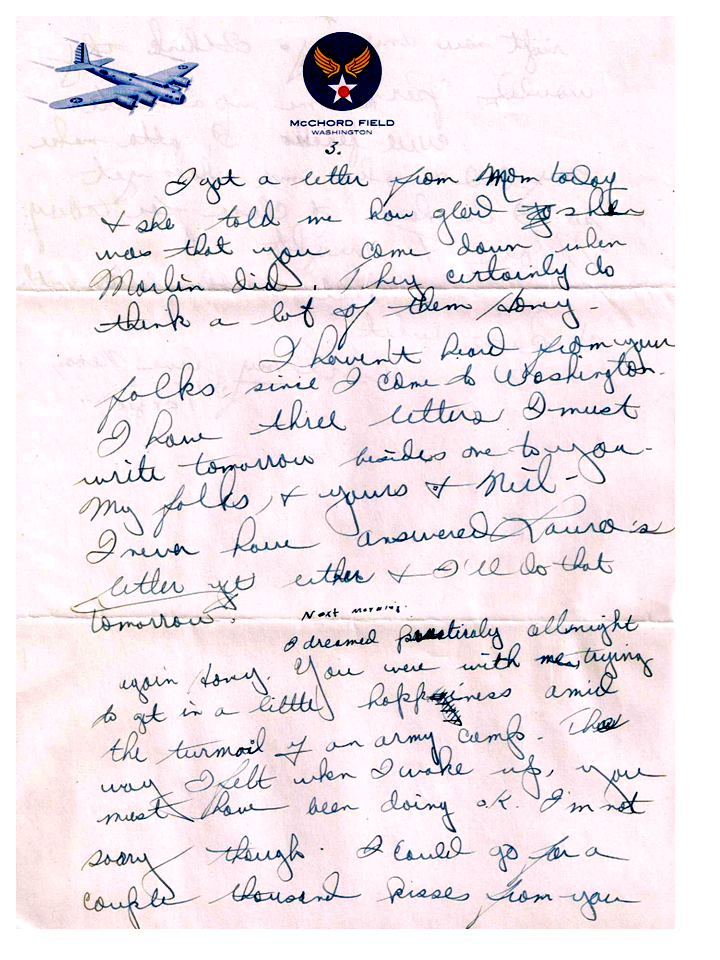 McCHORD FIELD
WASHINGTON
3.
I got a letter from Mom today
& she told me how glad she
was that you come down when
Marlin did. They certainly do
think a lot of them Honey.
I haven't heard from your
folks since I come to Washington.
I have three letters I must
write tomorrow besides one to you.
My folks, & yours & Neil.
I never have answered Laura's
letter yet either & I'll do that
tomorrow.
Next morning.
I dreamed practicaly all night
again Honey. You were with me, trying
to get in a little happiness amid
the turmoil of an army camp. The
way I felt when I wake up, you
must have been doing ok. I'm not
soary though. I could go for a
couple thousand kisses from you